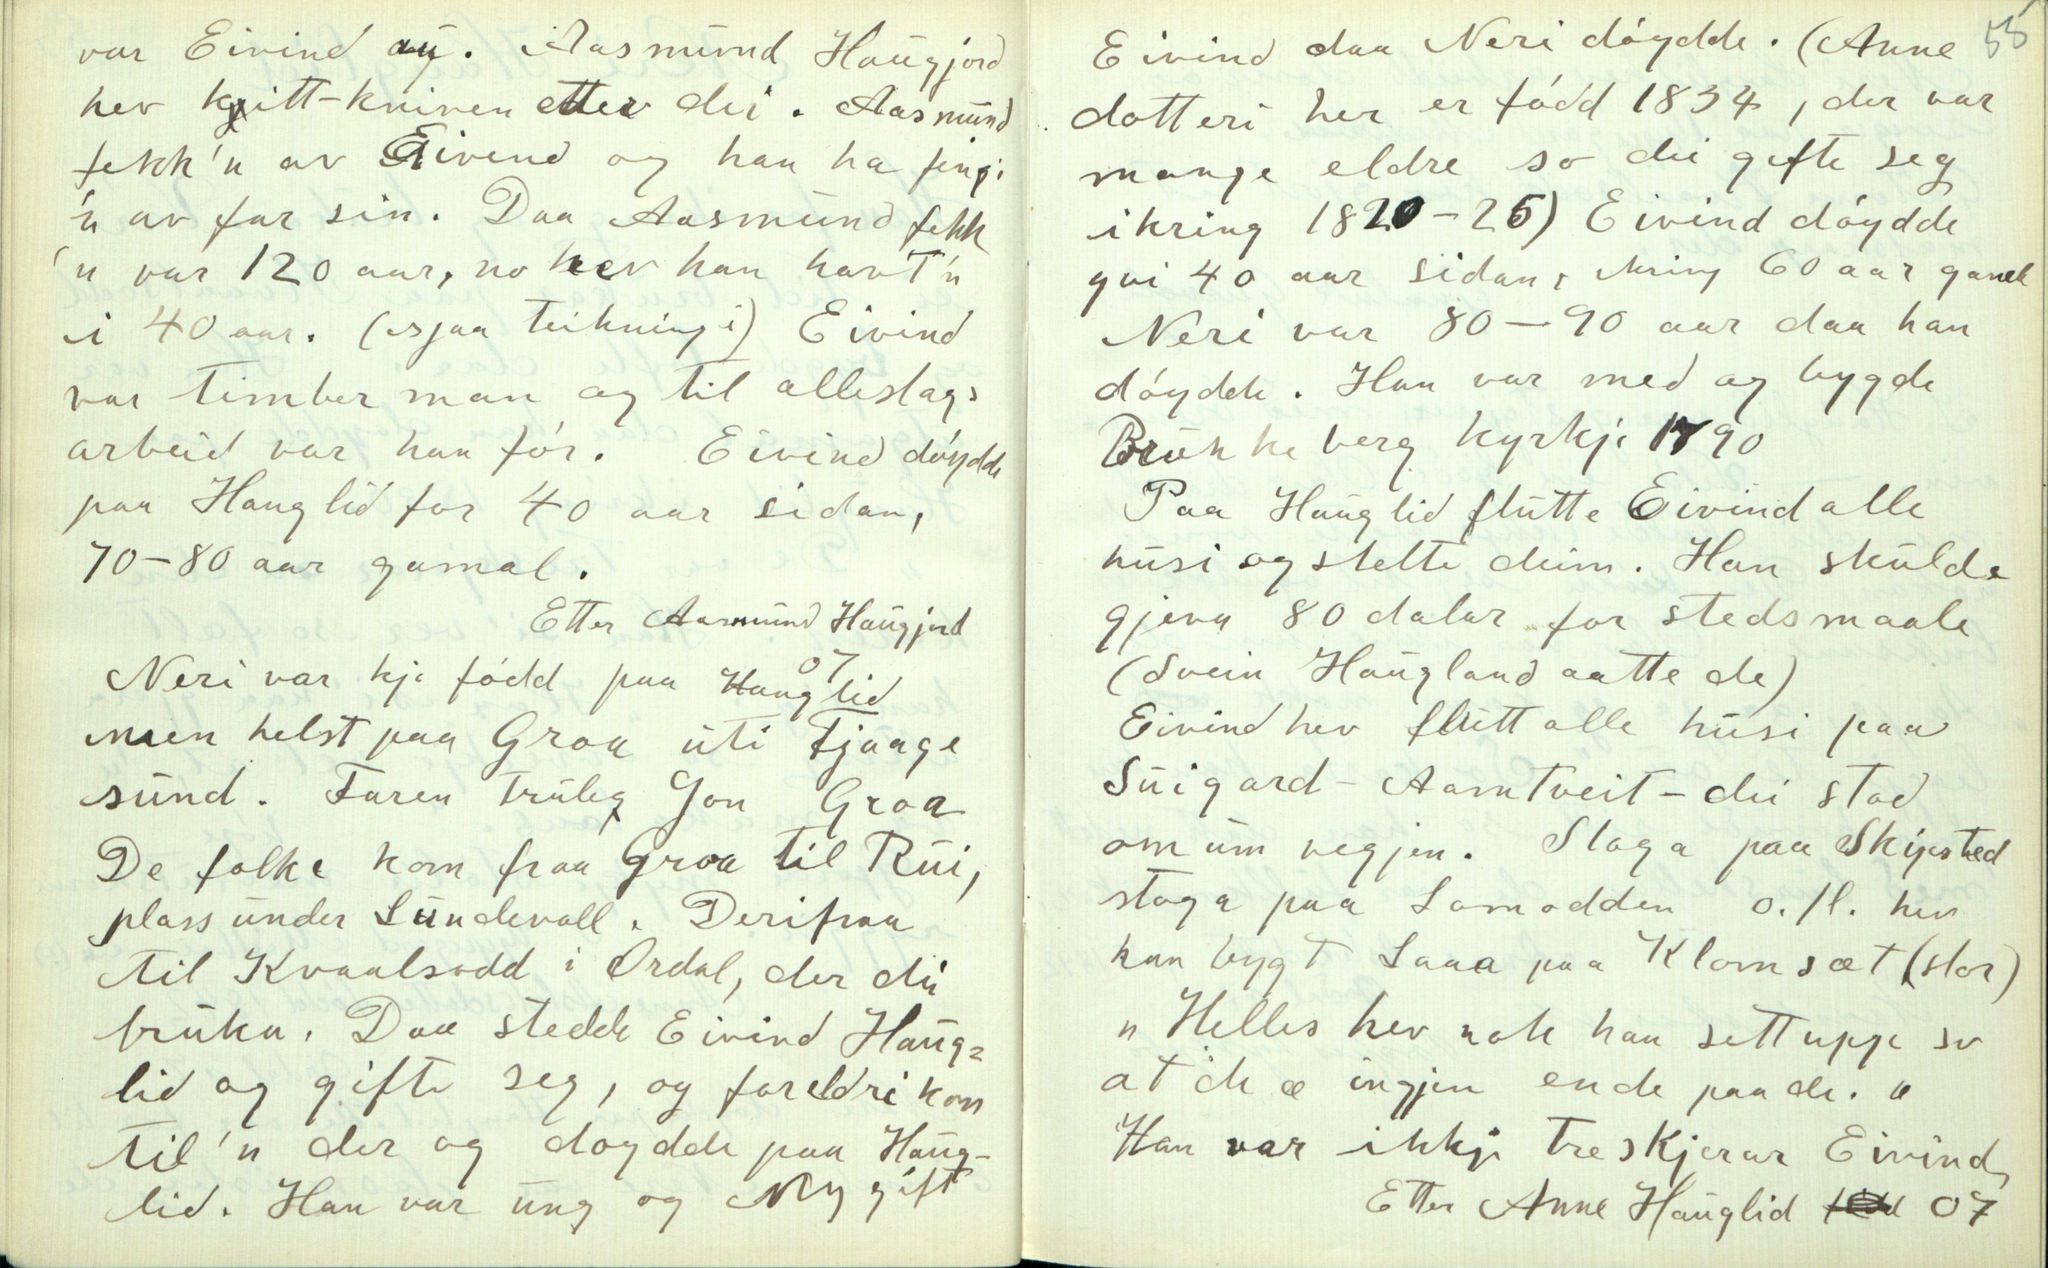 var Eivind au. Aasmund Haugjord
hev kvitt-kniven etter dei. Aasmund
fekk'n av Eivend og han ha fingi
'n av far sin. Daa Aasmund fekk
'n var 120 aar, no hev han havt'n
i 40 aar. (sjaa teikningi) Eivind
var timber man og til alleslags
arbeid var han før. Eivind døydde
paa Hauglid for 40 aar sidan,
70-80 aar gamal.
Etter Aasmund Haugjord
07
Neri var kje fødd paa Hauglid
men helst paa Groa uti Fjaage
sund. Faren truleg Jon Groa
De folke kom fraa Groa til Rui,
plass under Lundevall. Derifraa
til Kvaalsodd i Ordal, der dei
bruka. Daa stedde Eivind Haug=
lid og gifte seg, og foreldri kom
til'n der og doydde paa Haug-
lid. Han var ung og Ny gift
55
Eivind daa Neri døydde. (Anne
dotteri her er fødd 1834, der var
mange eldre so dei gifte seg
ikring 1820-25) Eivind døydde
gvi 40 aar sidan, kring 60 aar gamal
Neri var 80-90 aar daa han
døydde. Han var med og bygde
Brunkeberg kyrkje 1790
Paa Hauglid flutte Eivind alle
husi og stelte deim. Han skulde
gjeva 80 dalar for stedsmaale
(Svein Haugland aatte de)
Eivind hev flutt alle husi paa
Suigard - Aamtveit - dei stod
om um vegjen. Stoga paa Skipsted
stoga paa Lomodden o.fl. hev
han bygt Laaa paa Klomsæt (stor)
" Helles hev nok han sett uppe so
at de æ ingjen ende paa de. "
Han var ikkje treskjerar Eivind,
Etter Anne Hauglid 07